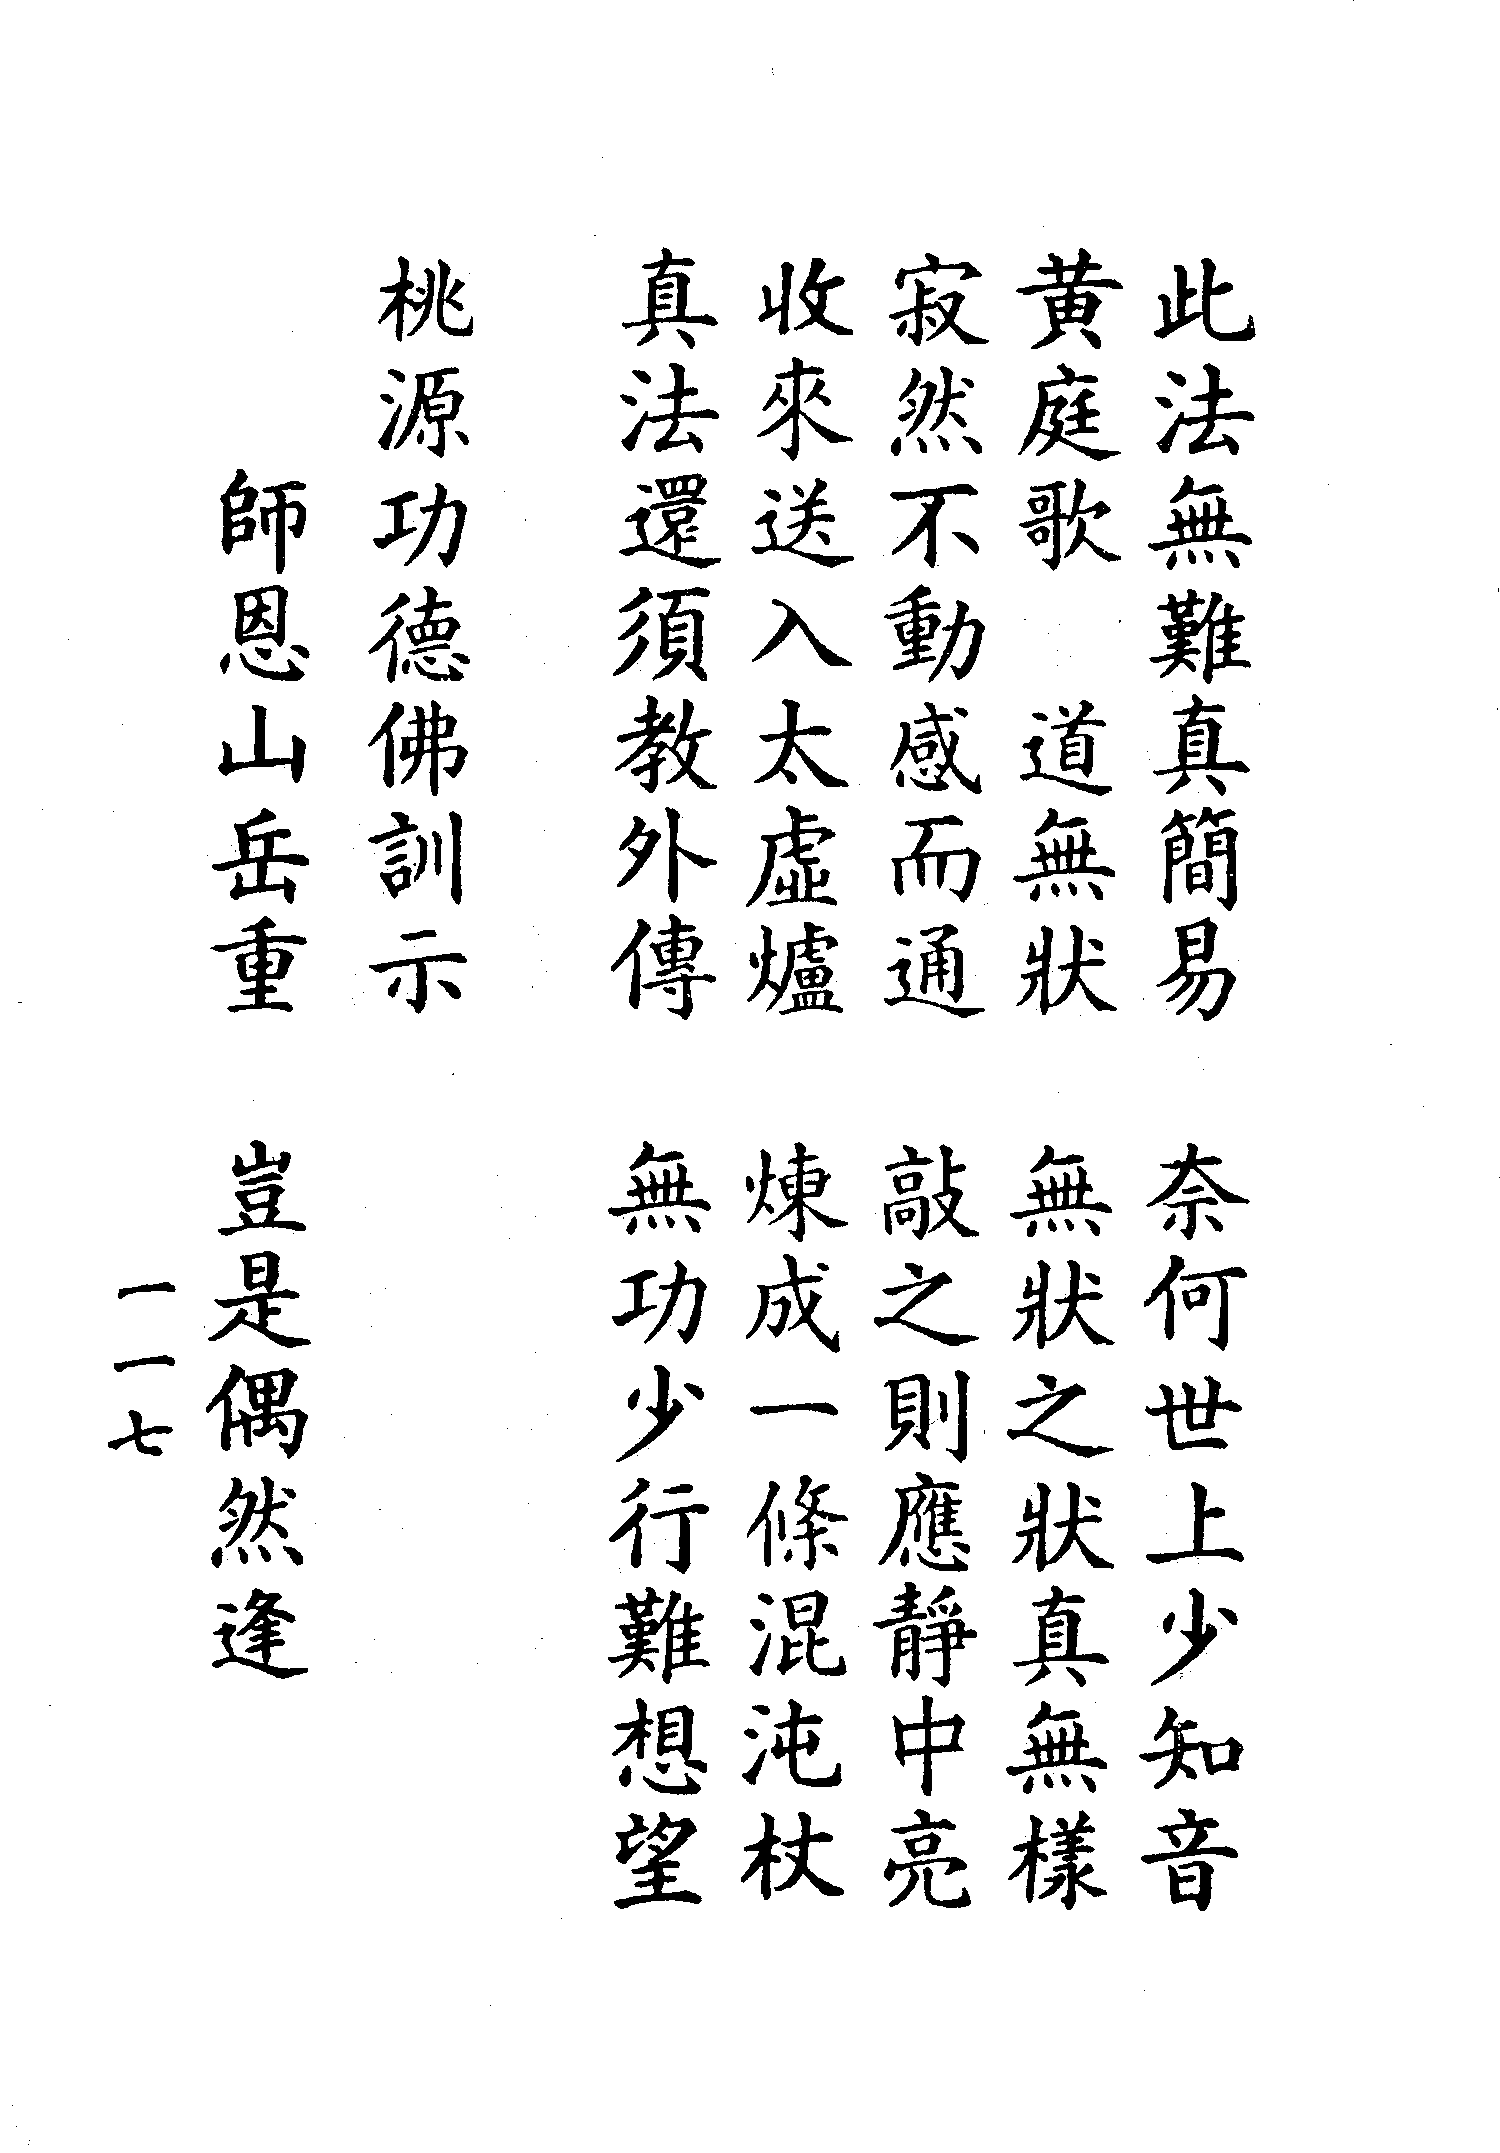 此法無難真簡易　奈何世上少知音
黃庭歌　道無狀　無狀之狀真無樣
寂然不動感而通　敲之則應靜中亮
收來送入太虛爐　煉成一條混沌杖
真法還須教外傳　無功少行難想望
桃源功德佛訓示
師恩山岳重　豈是偶然逢
一一七